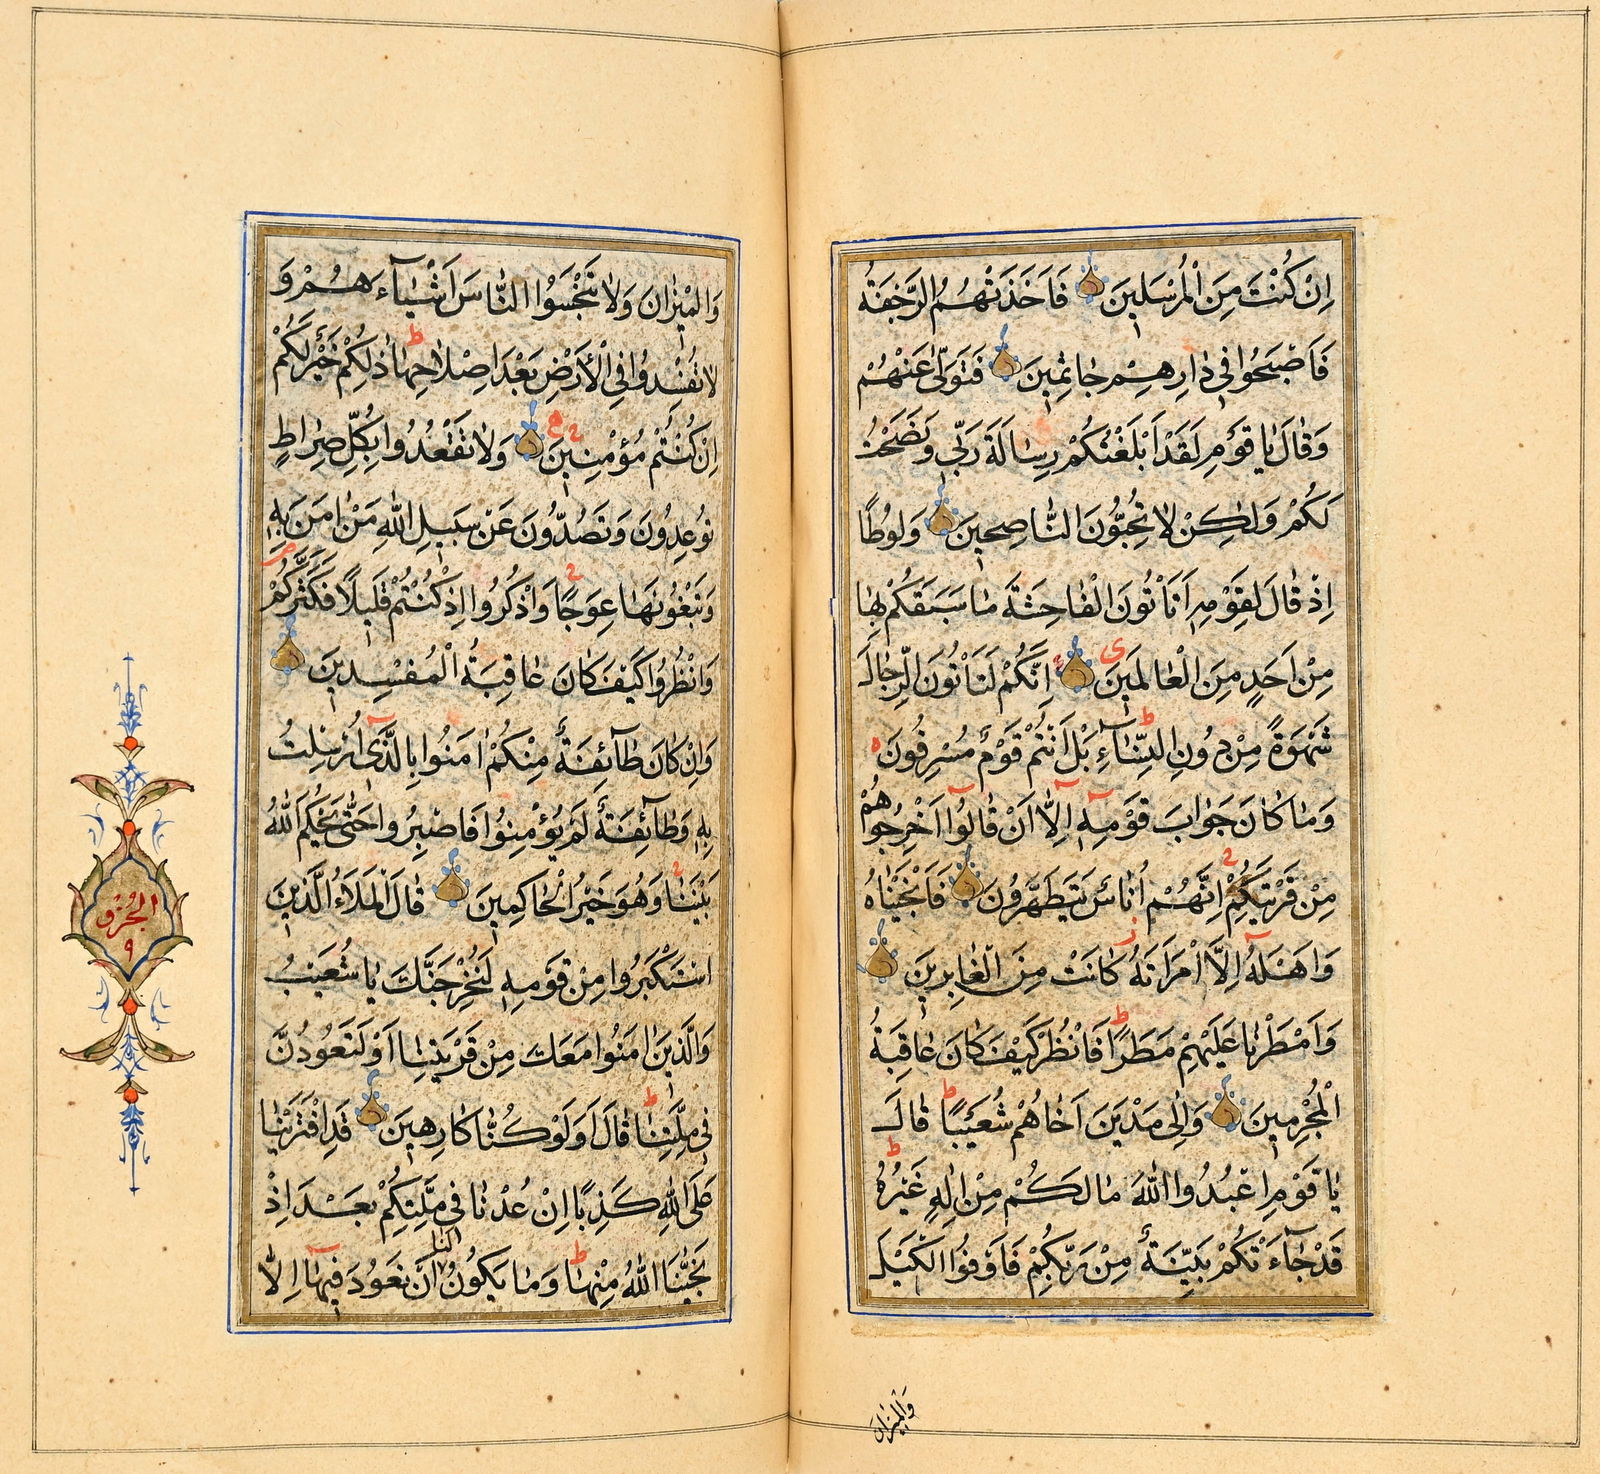 اِنْ كُنْتَ مِنَ الْمُرْسَلِينَ فَاَخَذَتْهُمُ الرَّجْفَةُ
فَاَصْبَحُوا فِي دٰارِهِمْ جٰاثِمِينَ فَتَوَلّٰى عَنْهُمْ
وَقٰالَ يٰا قَوْمِ لَقَدْ اَبْلَغْتُكُمْ رِسٰالَةَ رَبِّي وَنَصَحْتُ
لَكُمْ وَلٰكِنْ لٰا تُحِبُّونَ النّٰاصِحِينَ وَلُوطًا
اِذْ قٰالَ لِقَوْمِهِ اَتَاْتُونَ الْفٰاحِشَةَ مٰا سَبَقَكُمْ بِهٰا
مِنْ اَحَدٍ مِنَ الْعٰالَمِينَ اِنَّكُمْ لَتَاْتُونَ الرِّجٰالَ
شَهْوَةً مِنْ دُونِ النِّسٰآءِ بَلْ اَنْتُمْ قَوْمٌ مُسْرِفُونَ
وَمٰا كٰانَ جَوٰابَ قَوْمِهِ اِلّٰا اَنْ قٰالُوا اَخْرِجُوهُمْ
مِنْ قَرْيَتِكُمْ اِنَّهُمْ اُنٰاسٌ يَتَطَهَّرُونَ فَاَنْجَيْنٰاهُ
وَاَهْلَهُ اِلَّا امْرَاَتَهُ كٰانَتْ مِنَ الْغٰابِرِينَ
وَاَمْطَرْنٰا عَلَيْهِمْ مَطَرًا فَانْظُرْ كَيْفَ كٰانَ عٰاقِبَةُ
الْمُجْرِمِينَ وَاِلٰى مَدْيَنَ اَخٰاهُمْ شُعَيْبًا قٰالَ
يٰا قَوْمِ اعْبُدُوا اللّٰهَ مٰا لَكُمْ مِنْ اِلٰهٍ غَيْرُهُ
قَدْ جٰآءَتْكُمْ بَيِّنَةٌ مِنْ رَبِّكُمْ فَاَوْفُوا الْكَيْلَ
وَالْمِيزٰانَ
وَالْمِيزٰانَ وَلٰا تَبْخَسُوا النّٰاسَ اَشْيٰآءَهُمْ وَ
لٰا تُفْسِدُوا فِي الْاَرْضِ بَعْدَ اِصْلٰاحِهٰا ذٰلِكُمْ خَيْرٌ لَكُمْ
اِنْ كُنْتُمْ مُؤْمِنِينَ وَلٰا تَقْعُدُوا بِكُلِّ صِرٰاطٍ
تُوعِدُونَ وَتَصُدُّونَ عَنْ سَبِيلِ اللّٰهِ مَنْ اٰمَنَ بِهِ
وَتَبْغُونَهٰا عِوَجًا وَاذْكُرُوا اِذْ كُنْتُمْ قَلِيلًا فَكَثَّرَكُمْ
وَانْظُرُوا كَيْفَ كٰانَ عٰاقِبَةُ الْمُفْسِدِينَ
وَاِنْ كٰانَ طٰآئِفَةٌ مِنْكُمْ اٰمَنُوا بِالَّذِي اُرْسِلْتُ
بِهِ وَطٰآئِفَةٌ لَمْ يُؤْمِنُوا فَاصْبِرُوا حَتّٰى يَحْكُمَ اللّٰهُ
بَيْنَنٰا وَهُوَ خَيْرُ الْحٰاكِمِينَ قٰالَ الْمَلَاُ الَّذِينَ
اسْتَكْبَرُوا مِنْ قَوْمِهِ لَنُخْرِجَنَّكَ يٰا شُعَيْبُ
وَالَّذِينَ اٰمَنُوا مَعَكَ مِنْ قَرْيَتِنٰا اَوْ لَتَعُودُنَّ
فِي مِلَّتِنٰا قٰالَ اَوَلَوْ كُنّٰا كٰارِهِينَ قَدِ افْتَرَيْنٰا
عَلَى اللّٰهِ كَذِبًا اِنْ عُدْنٰا فِي مِلَّتِكُمْ بَعْدَ اِذْ
نَجّٰينَا اللّٰهُ مِنْهٰا وَمٰا يَكُونُ لنا اَنْ نَعُودَ فِيهٰا اِلّٰا
الجُزْو
٩